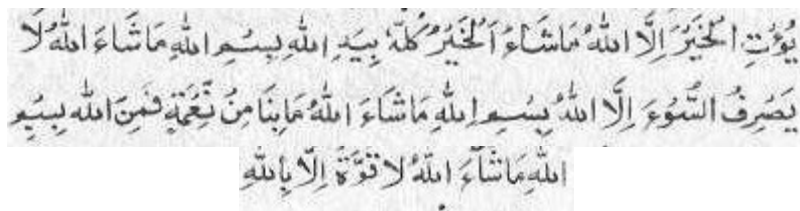 يُؤْتِ الْخَيْرَ اِلَّا اللهُ مَاشَاءَ اَلْخَيْرُ كُلُّهٗ بِيَدِ اللهِ بِسْمِ اللهِ مَاشَاءَ اللهُ لَا
يَصْرِفُ السُّوْءَ اِلَّا اللهُ بِسْمِ اللهِ مَاشَاءَ اللهُ مَابِنَا مِنْ نِّعْمَةٍ فَمِنَ الله بِسْمِ
اللهِ مَاشَآءَ اللهُ لَا قُوَّةَ اِلَّا بِاللهِ